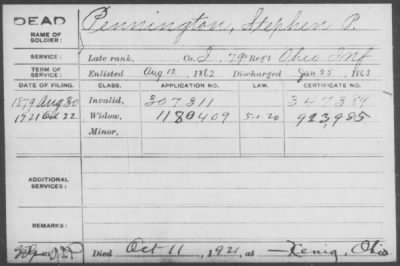 DEAD
NAME OF SOLDIER: Pennington, Stephen P.
SERVICE: Late rank, Co. I, 79 Reg't Ohio Inf
TERM OF SERVICE: Enlisted Aug 12, 1862 Discharged Jan 25, 1863
DATE OF FILING. CLASS. APPLICATION NO. LAW. CERTIFICATE NO.
1879 Aug 30 Invalid, 307311 347389
1921 Oct 22 Widow, 1180409 5-1-20 923,985
Minor,
ADDITIONAL SERVICES:
REMARKS:
Died Oct 11, 1921, at Xenia, Ohio